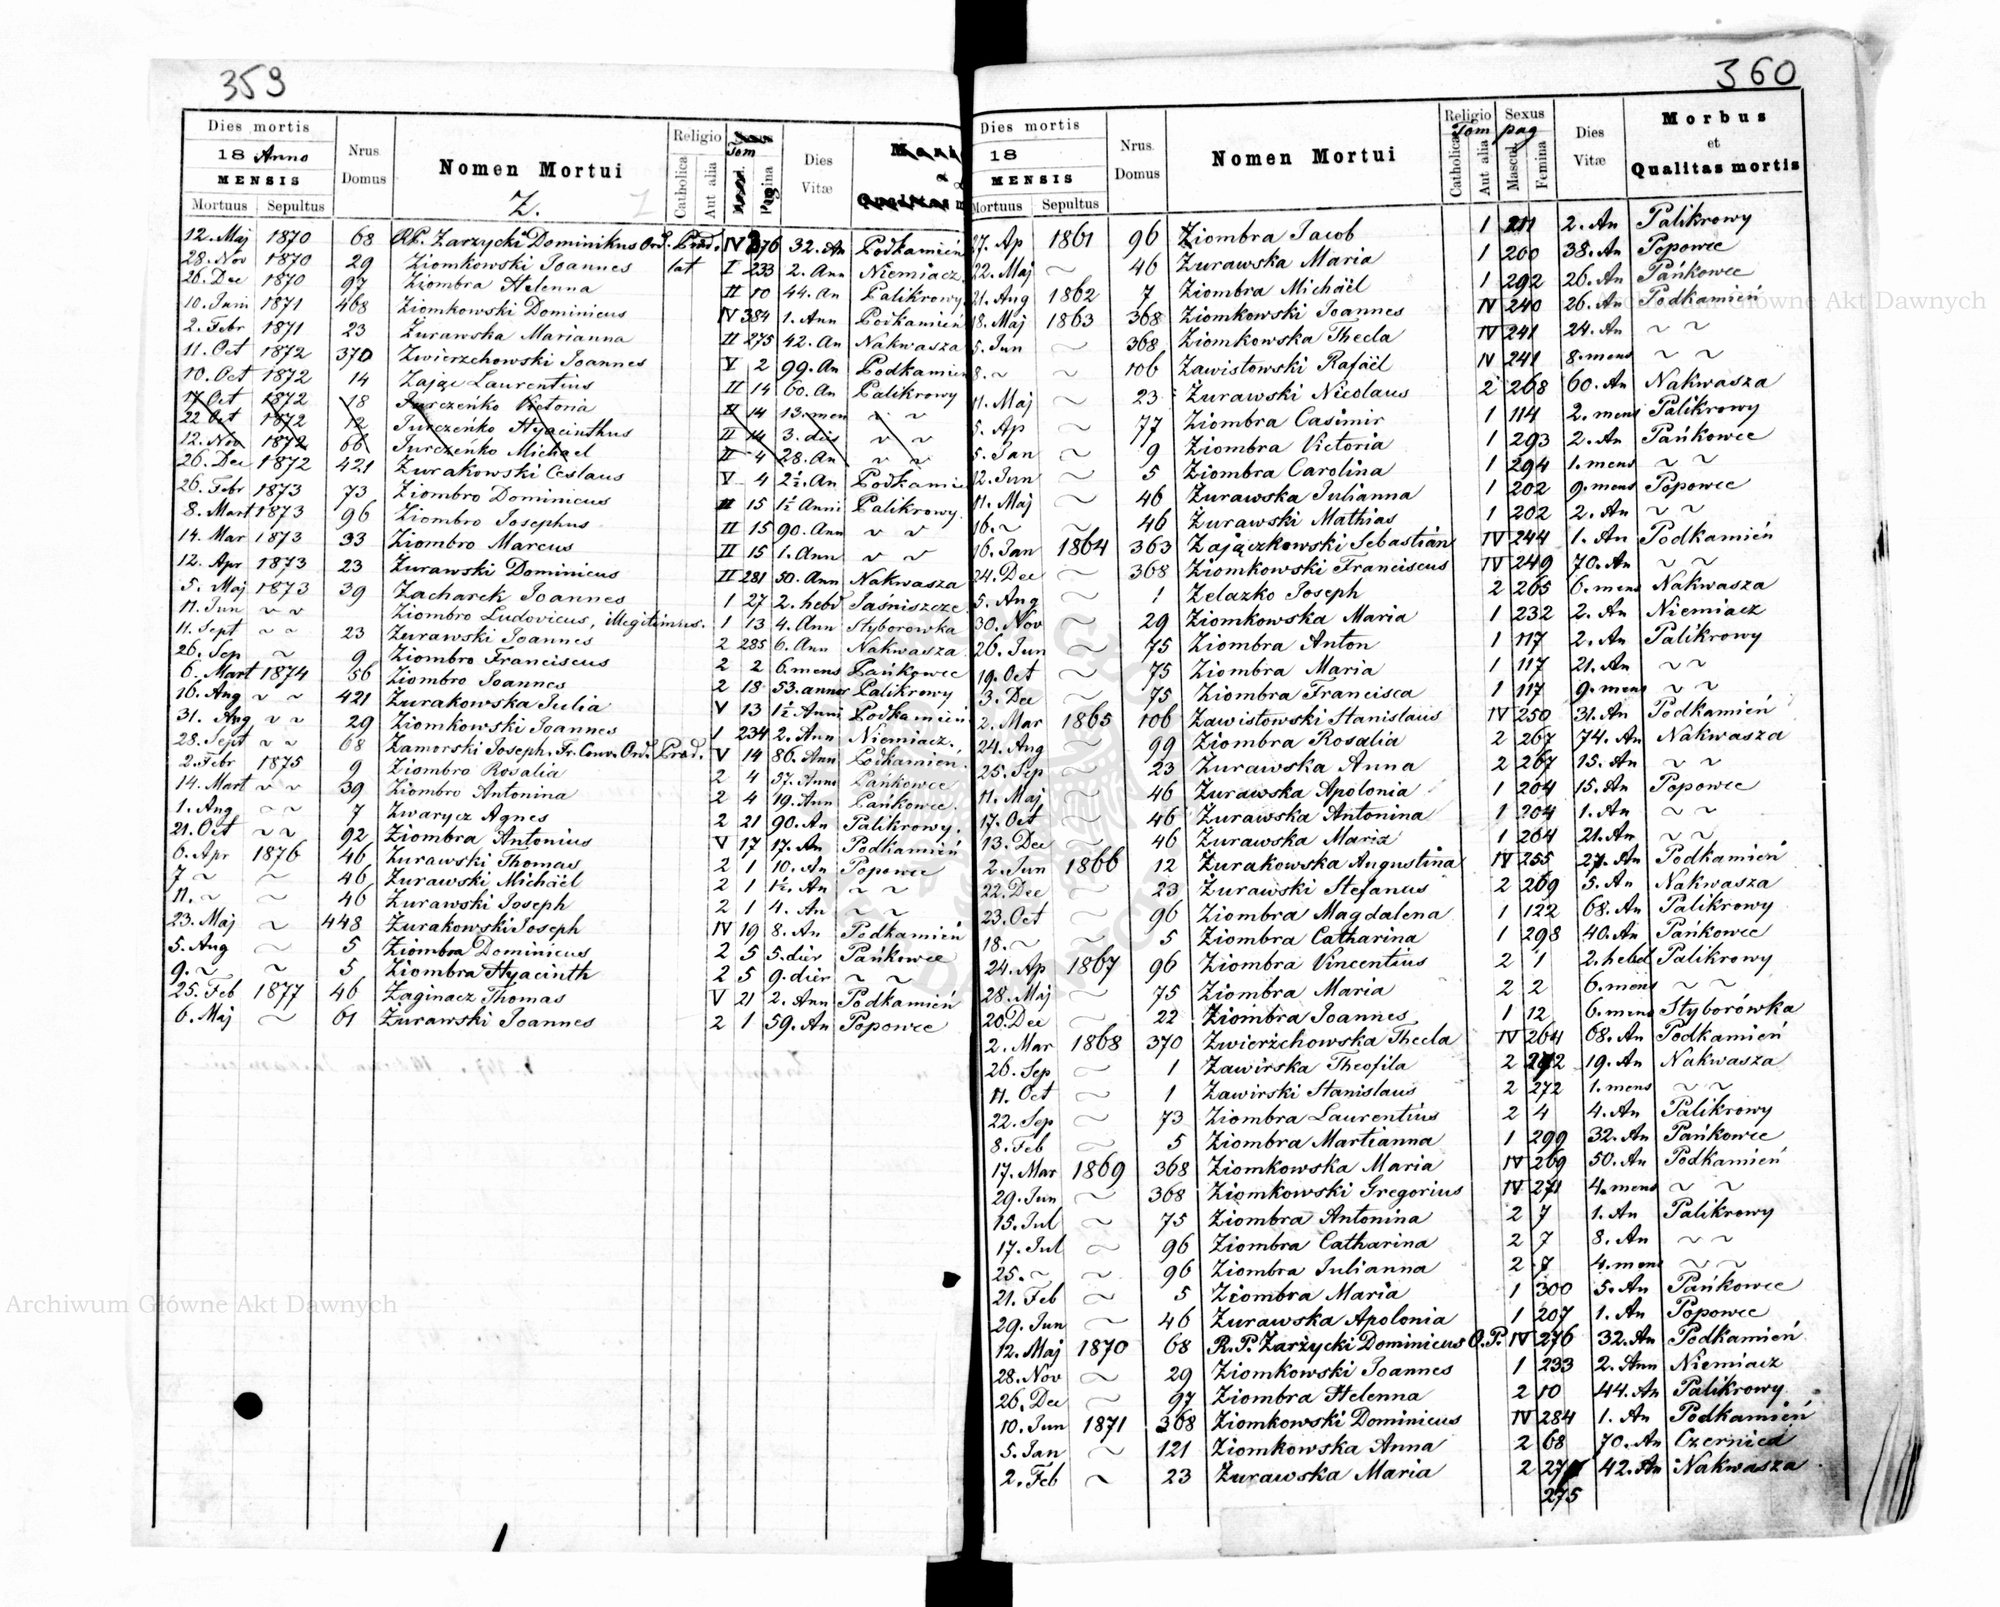 359
Dies mortis
18 Anno
MENSIS
Mortuus Sepultus
Nrus Domus
Nomen Mortui
Z.
Religio
Catholica
Aut alia
Tom
Pagina
Dies Vitæ
12. Maj 1870 68 RP. Zarzycki Dominikus Ord. Præd. IV 276 32. An Podkamień
28. Nov 1870 29 Ziomkowski Joannes lat I 233 2. Ann Niemiacz
26. Dec 1870 97 Ziombra Helenna II 10 44. An Palikrowy
10. Juni 1871 468 Ziomkowski Dominicus IV 384 1. Ann Podkamień
2. Febr 1871 23 Żurawska Marianna II 275 42. An Nakwasza
11. Oct 1872 370 Zwierzchowski Joannes V 2 99. An Podkamień
10. Oct 1872 14 Zając Laurentius II 14 60. An Palikrowy
17 Oct 1872 18 Jurczeńko Victoria II 14 13. men ~ ~
22 Oct 1872 12 Jurczeńko Hyacinthus II 14 3. dies ~ ~
12. Nov 1872 66 Jurczeńko Michael II 4 28. An ~ ~
26. Dec 1872 421 Żurakowski Ceslaus V 4 2½. An Podkamie
26. Febr 1873 73 Ziombro Dominicus II 15 1½ Anni Palikrowy
8. Mart 1873 96 Ziombro Josephus II 15 90. Ann ~ ~
14. Mar 1873 33 Ziombro Marcus II 15 1. Ann ~ ~
12. Apr 1873 23 Żurawski Dominicus II 281 50. Ann Nakwasza
5. Maj 1873 39 Zacharek Joannes 1 27 2. hebd Jaśniszcze
11. Jun ~ ~ Ziombro Ludovicus, illegitimus. 1 13 4. Ann Styborowka
11. Sept ~ ~ 23 Żurawski Joannes 2 285 6. Ann Nakwasza
26. Sep ~ 9 Ziombro Franciscus 2 2 6. mens Pańkowce
6. Mart 1874 56 Ziombro Joannes 2 18 53. annos Palikrowy
16. Aug ~ ~ 421 Żurakowska Julia V 13 1½ Anni Podkamień
31. Aug ~ ~ 29 Ziomkowski Joannes 1 234 2. Ann Niemiacz.
28. Sept ~ ~ 68 Zamorski Joseph. Fr. Conv. Ord. Præd. V 14 86. Ann Podkamien.
2. Febr 1875 9 Ziombro Rosalia 2 4 57. Anno Pańkowce
14. Mart ~ ~ 39 Ziombro Antonina 2 4 19. Ann Pańkowce.
1. Aug ~ ~ 7 Zwarycz Agnes 2 21 90. An Palikrowy.
21. Oct ~ ~ 92 Ziombra Antonius V 17 17. An Podkamień
6. Apr 1876 46 Żurawski Thomas 2 1 10. An Popowce
7 ~ ~ 46 Żurawski Michäel 2 1 1½. An ~ ~
11. ~ ~ 46 Żurawski Joseph 2 1 4. An ~ ~
23. Maj ~ 448 Żurakowski Joseph IV 19 8. An Podkamień
5. Aug ~ 5 Ziombra Dominicus 2 5 5. dier Pańkowce
9. ~ ~ 5 Ziombra Hyacinth 2 5 9. dier ~ ~
25. Feb 1877 46 Zaginacz Thomas V 21 2. Ann Podkamień
6. Maj ~ 61 Żurawski Joannes 2 1 59. An Popowce
360
Dies mortis
18
MENSIS
Mortuus Sepultus
Nrus. Domus
Nomen Mortui
Religio Sexus
Tom pag
Catholica
Aut alia
Mascul.
Femina
Dies Vitæ
Morbus
et
Qualitas mortis
27. Ap 1861 96 Ziombra Jacob 1 211 2. An Palikrowy
22. Maj ~ 46 Żurawska Maria 1 200 38. An Popowce
21. Aug 1862 7 Ziombra Michäel 1 292 26. An Pańkowce
18. Maj 1863 368 Ziomkowski Joannes IV 240 26. An Podkamień
5. Jun ~ 368 Ziomkowska Thecla IV 241 24. An ~ ~
8. ~ ~ 106 Zawistowski Rafäel IV 241 8. mens ~ ~
11. Maj ~ 23 Żurawski Nicolaus 2 268 60. An Nakwasza
5. Ap ~ 77 Ziombra Casimir 1 114 2. mens Palikrowy
5. Jan ~ 9 Ziombra Victoria 1 293 2. An Pańkowce
12. Jun ~ 5 Ziombra Carolina 1 294 1. mens ~ ~
11. Maj ~ 46 Żurawska Julianna 1 202 9. mens Popowce
16. ~ ~ 46 Żurawski Mathias 1 202 2. An ~ ~
16. Jan 1864 363 Zajączkowski Sebastian IV 244 1. An Podkamień
24. Dec ~ 368 Ziomkowski Franciscus IV 249 70. An ~ ~
5. Aug ~ 1 Żelazko Joseph 2 265 6. mens Nakwasza
30. Nov ~ 29 Ziomkowska Maria 1 232 2. An Niemiacz
26. Jun ~ 75 Ziombra Anton 1 117 2. An Palikrowy
19. Oct ~ 75 Ziombra Maria 1 117 21. An ~ ~
3. Dec ~ 75 Ziombra Francisca 1 117 9. mens ~ ~
2. Mar 1865 106 Zawistowski Stanislaus IV 250 31. An Podkamień
24. Aug ~ 99 Ziombra Rosalia 2 267 74. An Nakwasza
25. Sep ~ 23 Żurawska Anna 2 267 15. An ~ ~
11. Maj ~ 46 Żurawska Apolonia 1 204 15. An Popowce
17. Oct ~ 46 Żurawska Antonina 1 204 1. An ~ ~
13. Dec ~ 46 Żurawska Maria 1 204 21. An ~ ~
2. Jun 1866 12 Żurakowska Augustina IV 255 27. An Podkamień
22. Dec ~ 23 Żurawski Stefanus 2 269 5. An Nakwasza
23. Oct ~ 96 Ziombra Magdalena 1 122 68. An Palikrowy
18. ~ ~ 5 Ziombra Catharina 1 298 40. An Pańkowce
24. Ap 1867 96 Ziombra Vincentius 2 1 2. hebd Palikrowy
28. Maj ~ 75 Ziombra Maria 2 2 6. mens ~ ~
20. Dec ~ 22 Ziombra Joannes 1 12 6. mens Styborówka
2. Mar 1868 370 Zwierzchowska Thecla IV 264 68. An Podkamień
26. Sep ~ 1 Zawirska Theofila 2 272 19. An Nakwasza
11. Oct ~ 1 Zawirski Stanislaus 2 272 1. mens ~ ~
22. Sep ~ 73 Ziombra Laurentius 2 4 4. An Palikrowy
8. Feb ~ 5 Ziombra Martianna 1 299 32. An Pańkowce
17. Mar 1869 368 Ziomkowska Maria IV 269 50. An Podkamień
29. Jun ~ 368 Ziomkowski Gregorius IV 271 4. mens ~ ~
15. Jul ~ 75 Ziombra Antonina 2 7 1. An Palikrowy
17. Jul ~ 96 Ziombra Catharina 2 7 8. An ~ ~
25. ~ ~ 96 Ziombra Julianna 2 7 4. mens ~ ~
21. Feb ~ 5 Ziombra Maria 1 300 5. An Pańkowce
29. Jun ~ 46 Żurawska Apolonia 1 207 1. An Popowce
12. Maj 1870 68 R. P. Zarzycki Dominicus O. P. IV 276 32. An Podkamień
28. Nov ~ 29 Ziomkowski Joannes 1 233 2. Ann Niemiacz
26. Dec ~ 97 Ziombra Helenna 2 10 44. An Palikrowy
10. Jun 1871 368 Ziomkowski Dominicus IV 284 1. An Podkamień
5. Jan ~ 121 Ziomkowska Anna 2 68 70. An Czernica
2. Feb ~ 23 Żurawska Maria 2 27 42. An Nakwasza
275
Archiwum Główne Akt Dawnych
Archiwum Główne Akt Dawnych